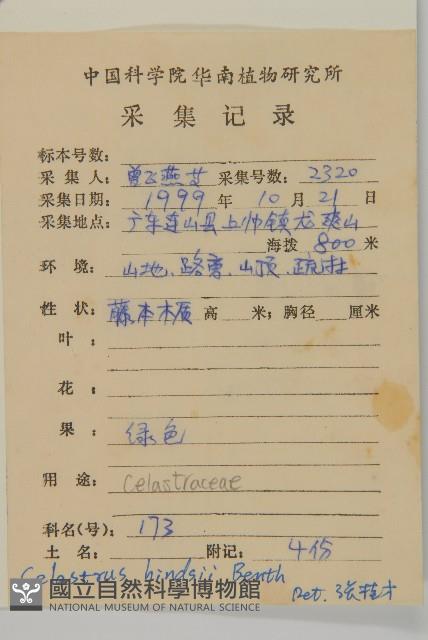 中国科学院华南植物研究所
采集记录
标本号数:
采集人: 曾飞燕 采集号数: 2320
采集日期: 1999 年 10 月 21 日
采集地点: 广东连山县上帅镇龙爽山
海拨 800 米
环境: 山地、路旁、山顶、疏林
性状: 藤本木质 高 米; 胸径 厘米
叶:
花:
果: 绿色
用途: Celastraceae
科名(号): 173
土名: 附记: 4份
Celastrus hindsii Benth
Det. 张桂才
國立自然科學博物館
NATIONAL MUSEUM OF NATURAL SCIENCE